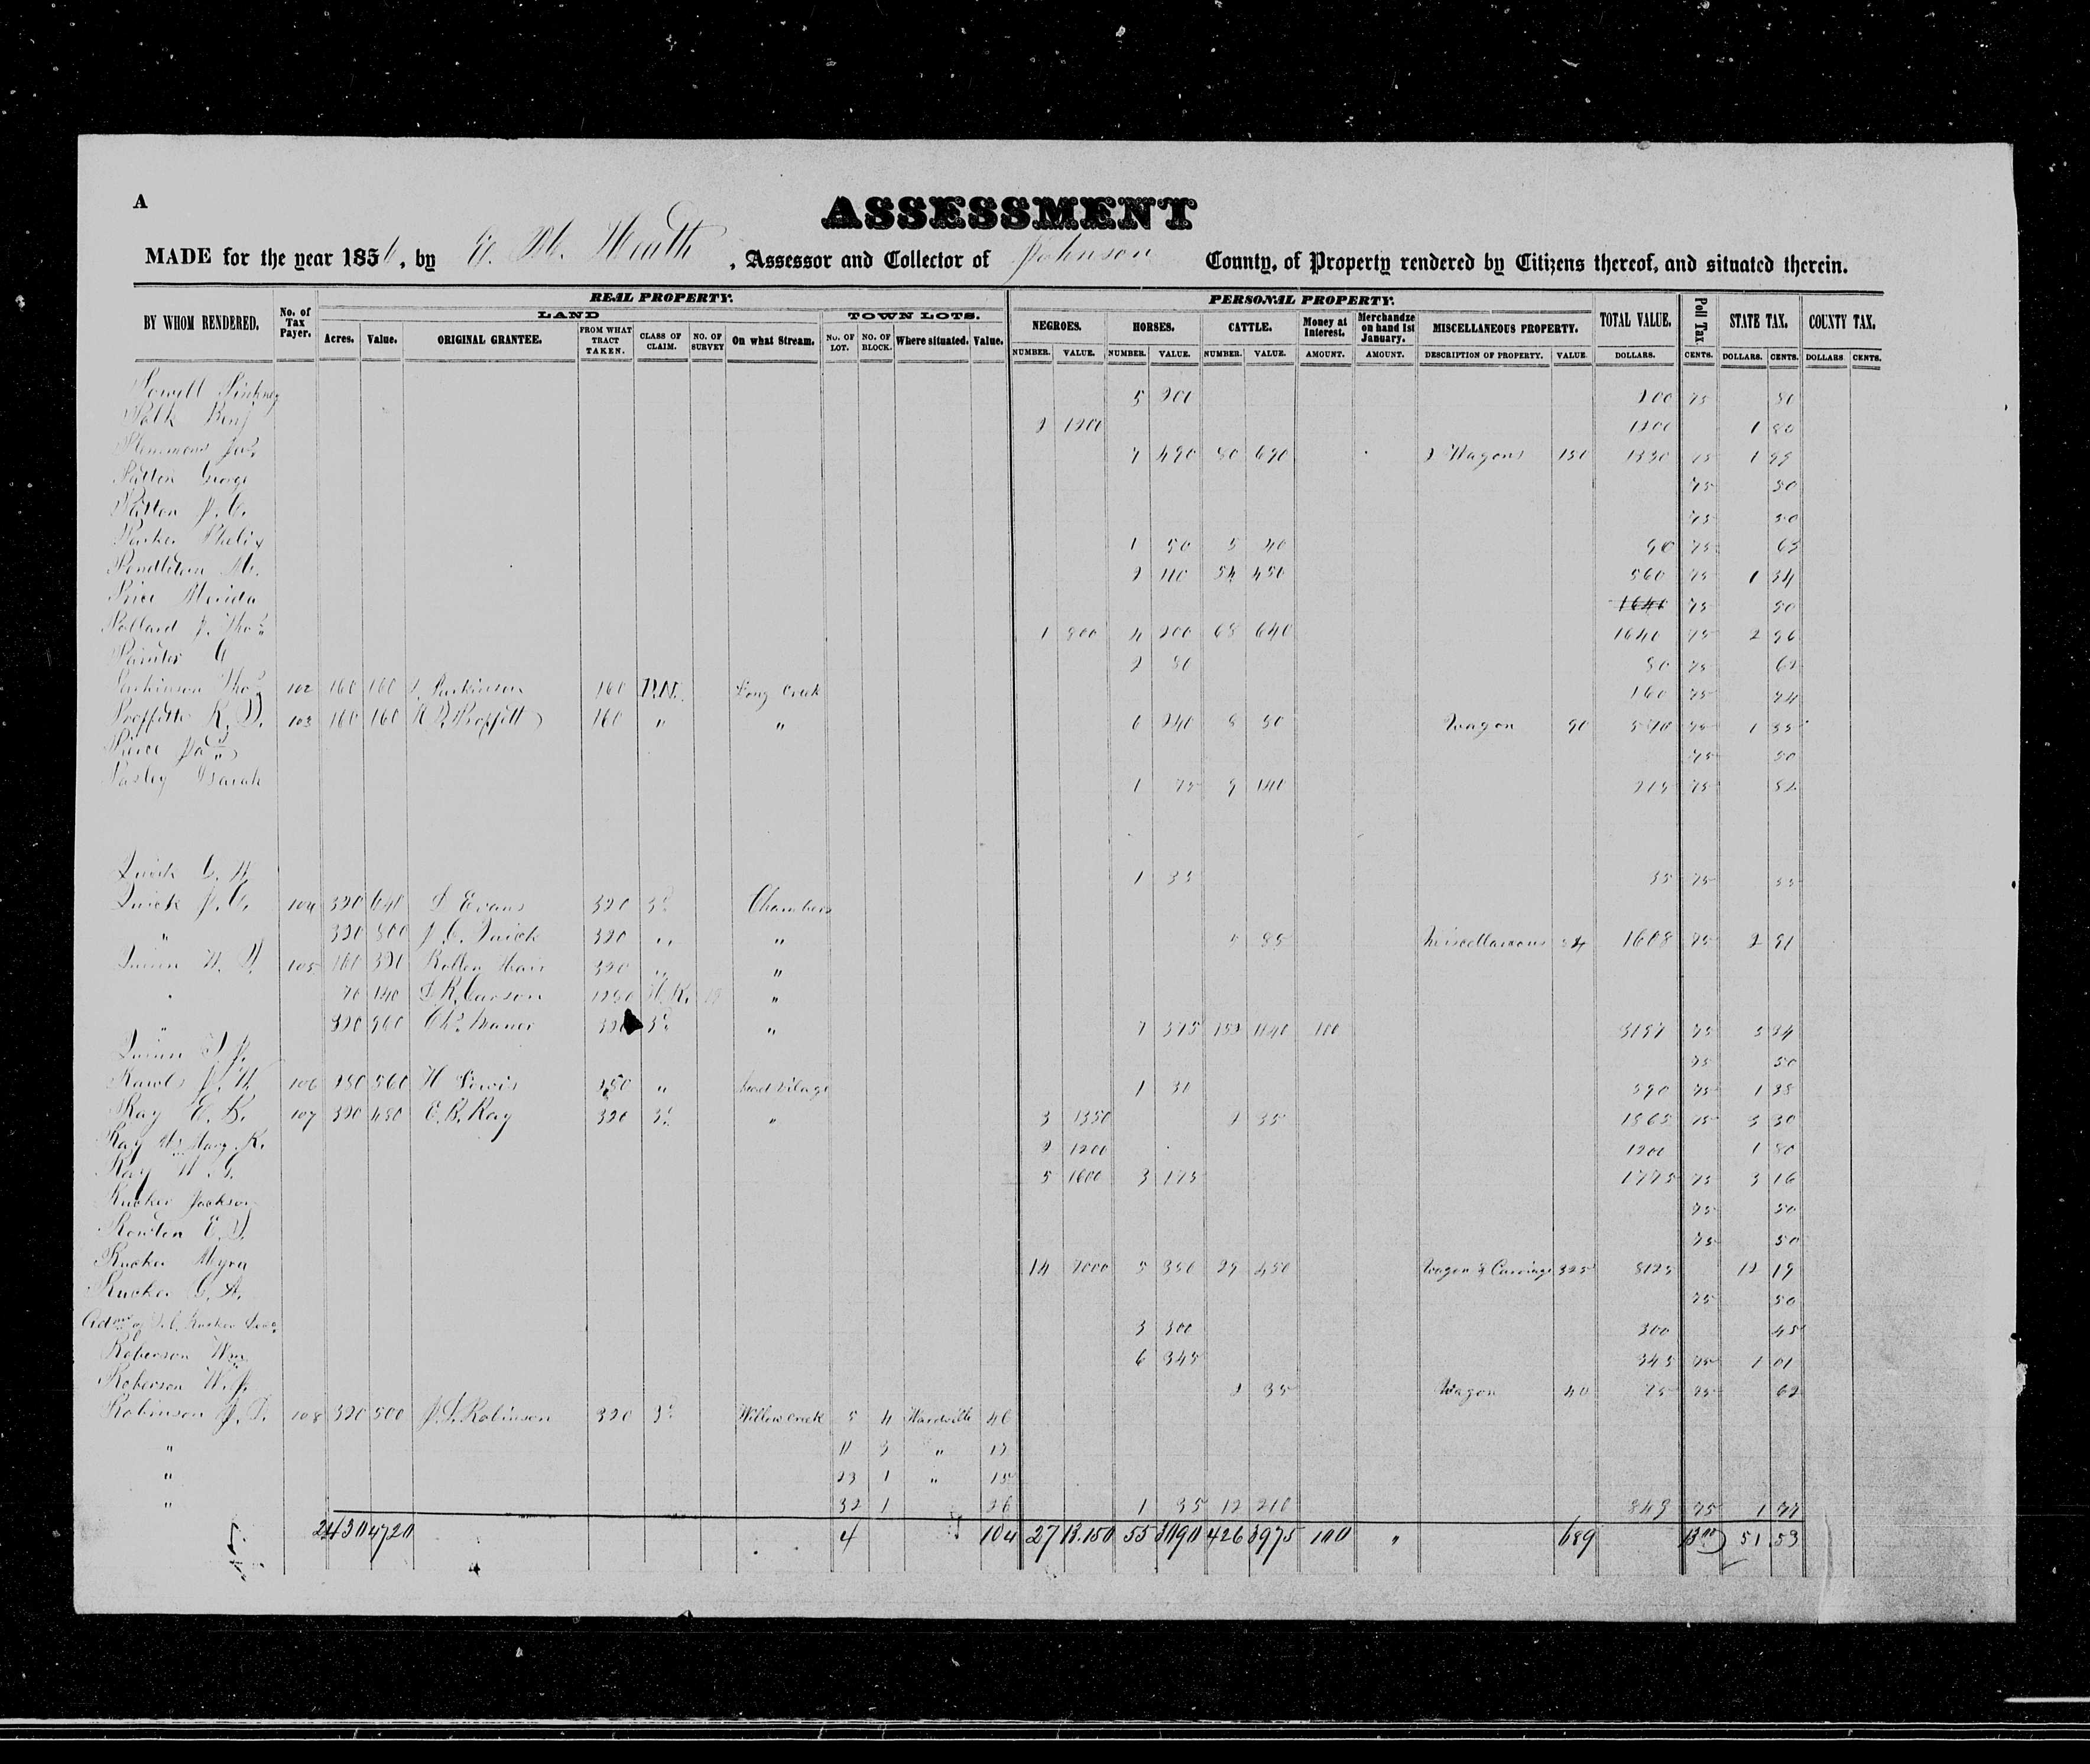 A
ASSESSMENT
MADE for the year 1856, by E. M. Heath, Assessor and Collector of Johnson County, of Property rendered by Citizens thereof, and situated therein.
REAL PROPERTY. PERSONAL PROPERTY.
LAND TOWN LOTS.
BY WHOM RENDERED. No. of Tax Payer. Acres. Value. ORIGINAL GRANTEE. FROM WHAT TRACT TAKEN. CLASS OF CLAIM. NO. OF SURVEY On what Stream. No. OF LOT. NO. OF BLOCK. Where situated. Value. NEGROES. HORSES. CATTLE. Money at Interest. Merchandze on hand 1st January. MISCELLANEOUS PROPERTY. TOTAL VALUE. Poll Tax. STATE TAX. COUNTY TAX.
NUMBER. VALUE. NUMBER. VALUE. NUMBER. VALUE. AMOUNT. AMOUNT. DESCRIPTION OF PROPERTY. VALUE. DOLLARS. CENTS. DOLLARS. CENTS. DOLLARS. CENTS.
5 200 200 75 80
Polk Benj 2 1200 1200 1 80
7 490 80 690 2 Wagons 150 1330 75
Patton George 75 50
Patton J. C. 75 50
Parker Phelix 1 50 5 40 90 75 63
Pendleton M. 2 110 54 450 560 75 1 34
Price Merida 1640 75 50
Pollard J. Thos 1 800 4 200 65 640 1640 75 2 96
Painter G 2 80 80 75 62
Parkinson Thos 102 160 160 Parkinson 160 P.N. Long Creek 160 75 74
Proffitt R. D. 103 160 160 R D Proffitt 160 " " 6 240 8 80 Wagon 90 570 75 1 35
Pierce Jas 75 50
Pasley Isaiah 1 75 9 140 215 75 82
Quick C. W 1 35 35 75 55
Quick J. C. 104 320 640 S Evans 320 3d Chambers
" 320 800 J. C. Quick 320 " " 85 Miscellaneous 1608 75 2 91
Quinn W. 105 160 320 Rollen Hair 320 " "
70 140 S. R. Carson 1280 H.R. "
" 320 960 Chs Maner 320 3d " 7 375 152 1140 100 75
Quinn 75 50
Rawls J. W 106 280 560 H Lewis " 1 30 590 75 1 38
Ray E. B. 107 320 480 E. B. Ray 320 3d " 3 1350 2 35 1865 75 3 30
Ray Mary K. 2 1200 1200 1 80
Ray W. G. 5 1600 3 175 1775 75 3 16
Rucker Jackson 75 50
Rowton E. D. 75 50
Rucker Myra 14 7000 5 350 29 450 Wagon & Carriage 325 8125 12 19
Rucker G. A. 75 50
Admr of Rucker 3 300 300 45
Roberson Wm 6 345 345 75 1 01
Roberson W. J. 2 35 Wagon 40 75 75 62
Robinson J. L. 108 320 500 J. L. Robinson 320 3d Willow creek 5 4 Wardville 46
" 11 3 " 17
" 23 1 " 15
" 32 1 26 1 35 12 210 849 75 1 77
2430 4720 4 104 27 13.150 55 3090 426 3975 100 " 689 51.53